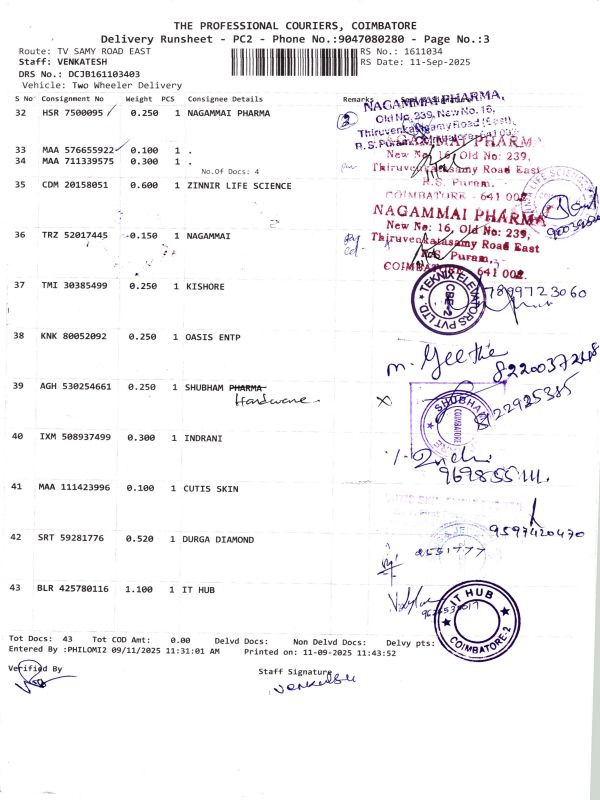 THE PROFESSIONAL COURIERS, COIMBATORE
Delivery Runsheet - PC2 - Phone No.:9047080280 - Page No.:3
Route: TV SAMY ROAD EAST
RS No.: 1611034
Staff: VENKATESH
RS Date: 11-Sep-2025
DRS No.: DCJB161103403
Vehicle: Two Wheeler Delivery
S No Consignment No Weight PCS Consignee Details Remarks
32 HSR 7500095 0.250 1 NAGAMMAI PHARMA
2
NAGAMMAI PHARMA,
Old No. 239, New No. 16,
Thiruvenkatasamy Road (East),
R.S. Puram, Coimbatore - 641 002
33 MAA 576655922 0.100 1 .
34 MAA 711339575 0.300 1 .
No.Of Docs: 4
NAGAMMAI PHARMA
New No: 16, Old No: 239,
Thiruvenkatasamy Road East
R.S. Puram,
COIMBATORE - 641 002
35 CDM 20158051 0.600 1 ZINNIR LIFE SCIENCE
36 TRZ 52017445 -0.150 1 NAGAMMAI
NAGAMMAI PHARMA
New No: 16, Old No: 239,
Thiruvenkatasamy Road East
R.S. Puram,
COIMBATORE - 641 002
37 TMI 30385499 0.250 1 KISHORE
TEKNIX ELEVATORS PVT LTD.
CBE-2
7899723060
38 KNK 80052092 0.250 1 OASIS ENTP
m. Geetha
8220037248
39 AGH 530254661 0.250 1 SHUBHAM PHARMA
Hardware
X
SHUBHAM
COIMBATORE
8122925385
40 IXM 508937499 0.300 1 INDRANI
41 MAA 111423996 0.100 1 CUTIS SKIN
9597420470
42 SRT 59281776 0.520 1 DURGA DIAMOND
43 BLR 425780116 1.100 1 IT HUB
IT HUB
COIMBATORE-2
Tot Docs: 43 Tot COD Amt: 0.00 Delvd Docs: Non Delvd Docs: Delvy pts:
Entered By :PHILOMI2 09/11/2025 11:31:01 AM Printed on: 11-09-2025 11:43:52
Verified By
Staff Signature
venkatesh